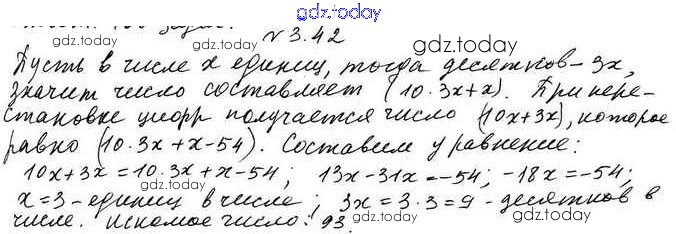 gdz.today
gdz.today № 3.42 gdz.today
Пусть в числе x единиц, тогда десятков - 3x,
значит число составляет (10·3x+x). При пере-
gdz.today gdz.today gdz.today
становке цифр получается число (10x+3x), которое
равно (10·3x+x-54). Составим уравнение:
gdz.today gdz.today
10x+3x=10·3x+x-54; 13x-31x=-54; -18x=-54;
gdz.today gdz.today gdz.today
x=3 - единиц в числе; 3x=3·3=9 - десятков в
числе. искомое число: 93.
gdz.today gdz.today